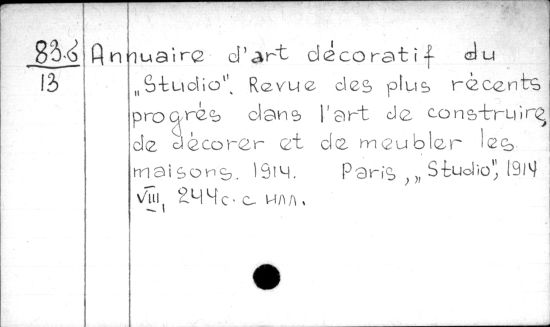 83.6 Annuaire d'art décoratif du
13 „Studio". Revue des plus récents
progrès dans l'art de construire,
de décorer et de meubler les
maisons. 1914. Paris, „Studio", 1914
VIII, 244 с. с илл.